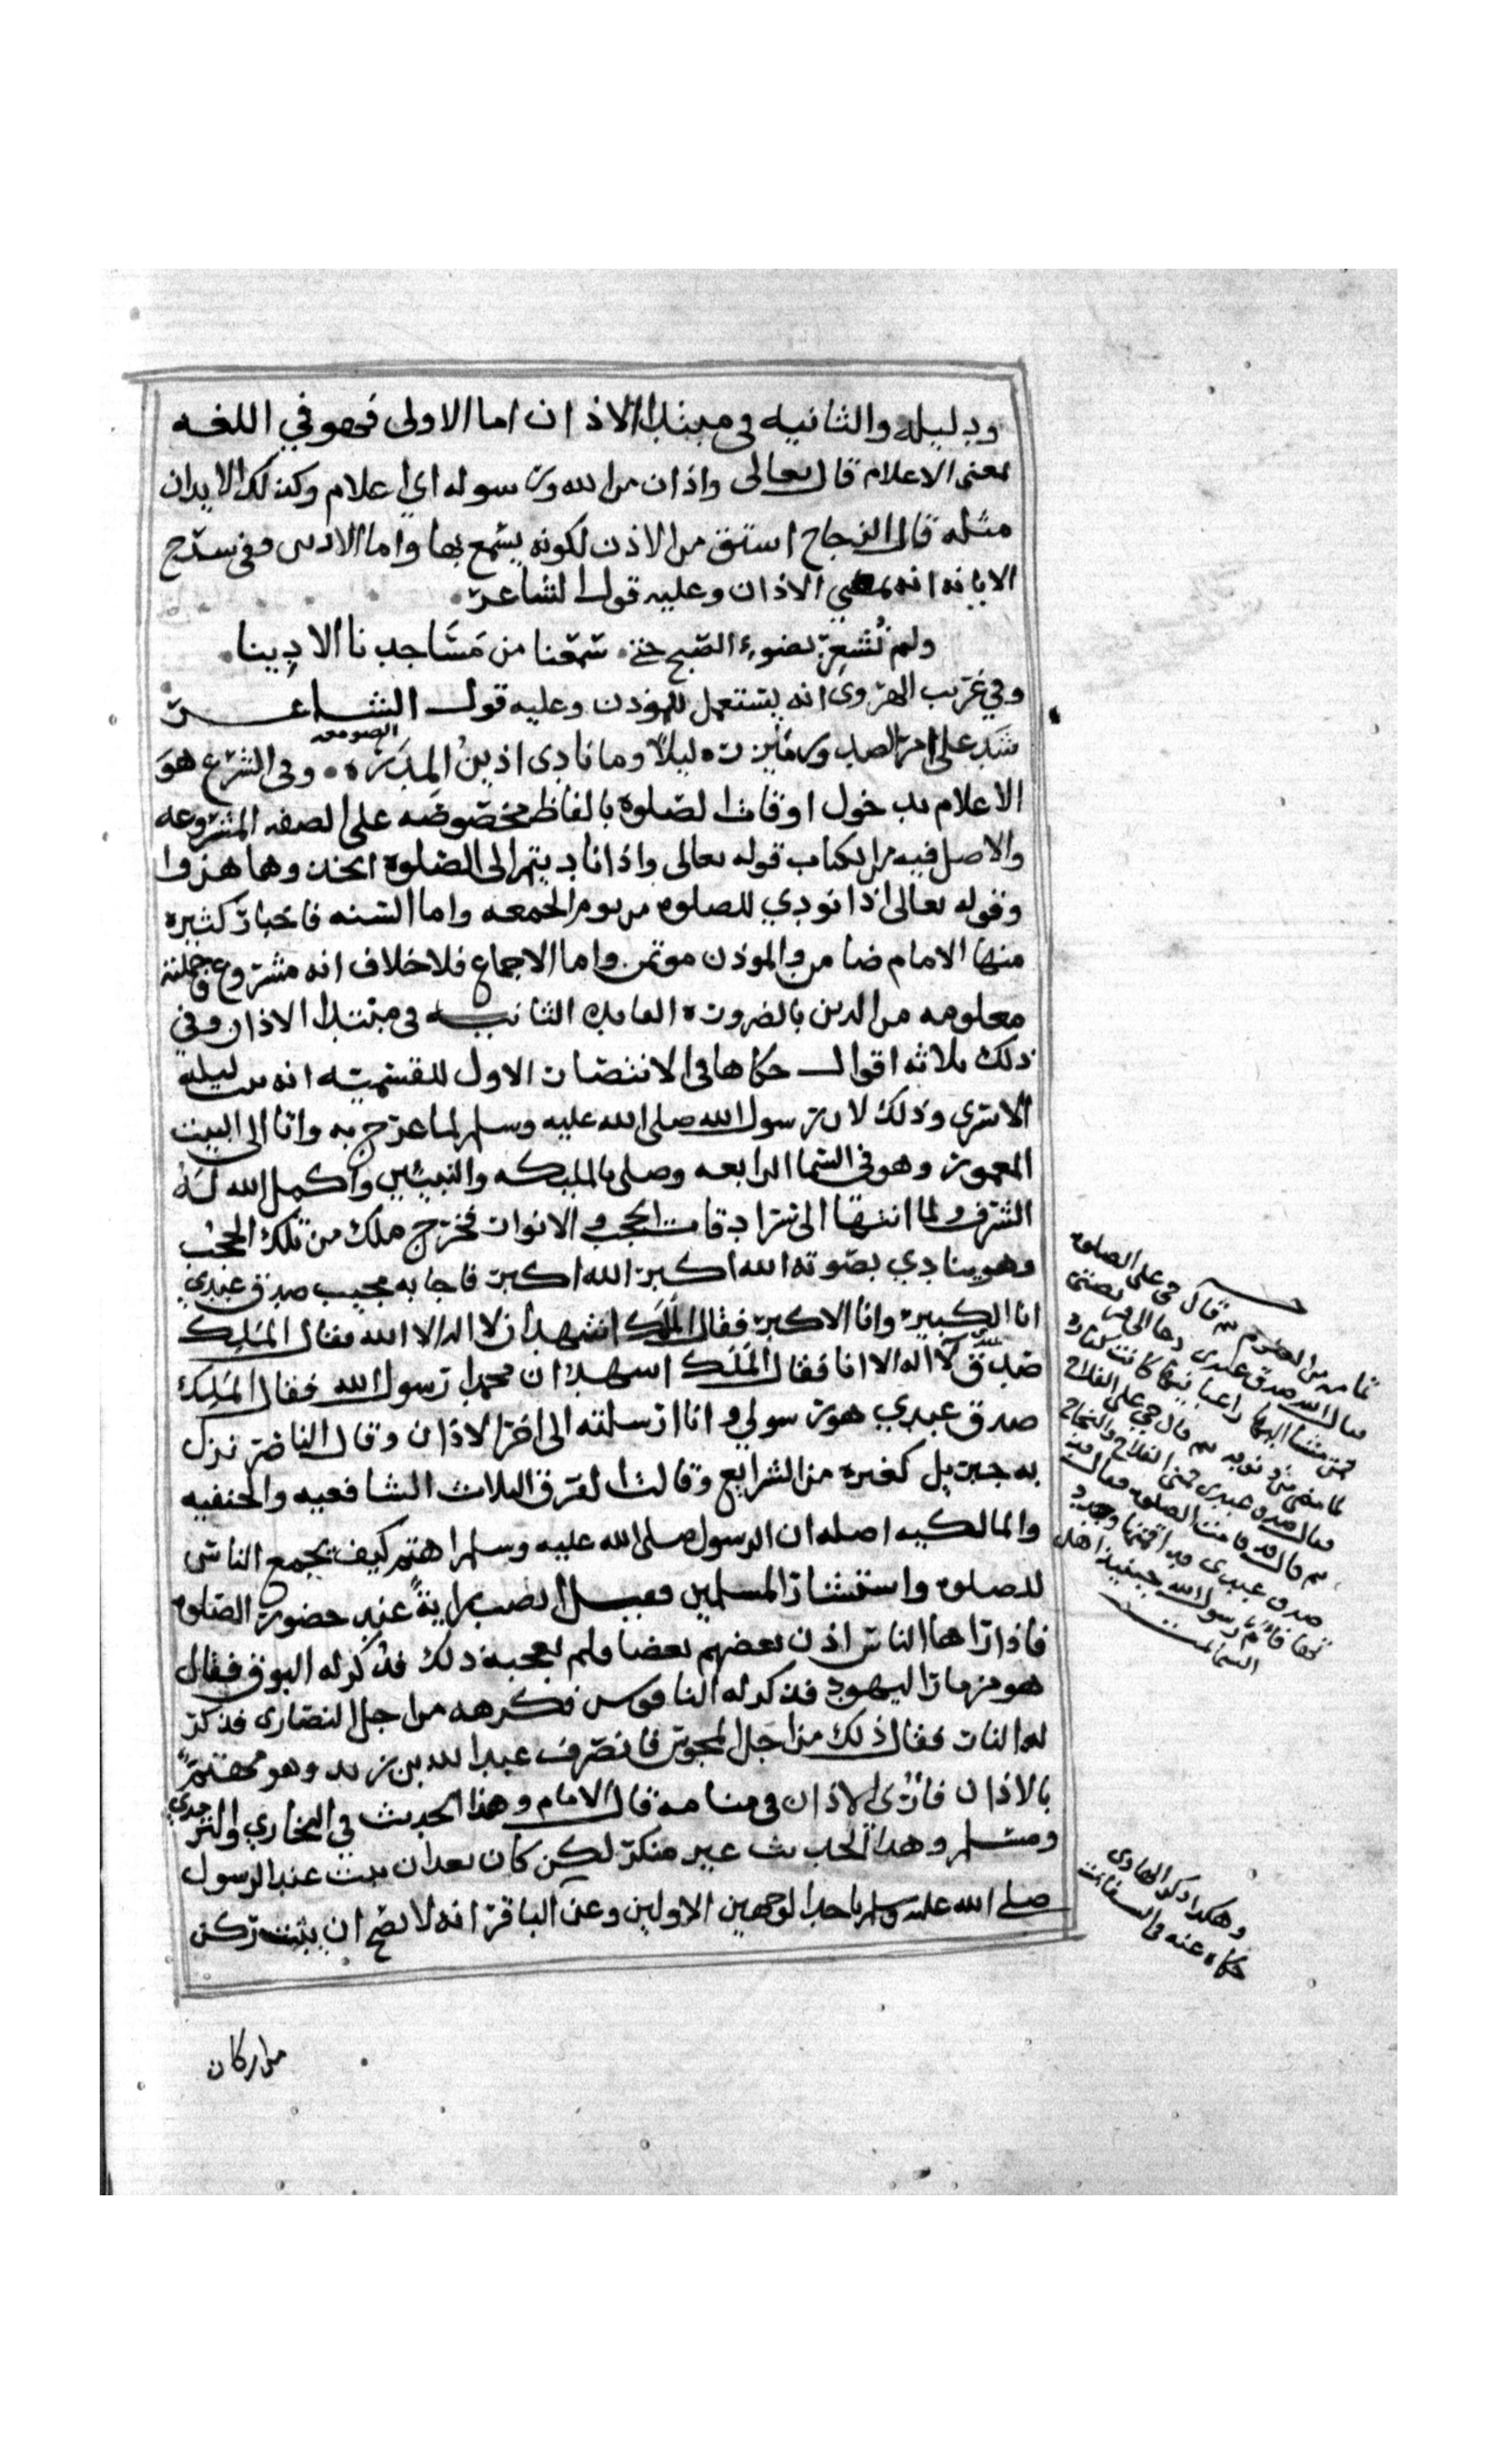 ودليله والثانيه فى مبتدا الاذان اما الاولى فهو في اللغه
بمعنى الاعلام قال تعالى واذان من الله ورسوله اي اعلام وكذلك الايذان
مثله قال الزجاج اشتق من الاذن لكونه يسمع بها واما الاذين ففى شرح
الابانه انه بمعني الاذان وعليه قول الشاعر
ولم نشعر بضوء الصبح حتى سمعنا من مساجدنا الاذينا
وفي غريب الهروى انه يستعمل للمؤذن وعليه قول الشاعر
شد على امر ليلا وما نادى اذين المدره وفى الشرع هو
الصومعه
الاعلام بدخول اوقات الصلوة بالفاظ مخصوصه على الصفه المشروعه
والاصل فيه من الكتاب قوله تعالى واذا ناديتم الى الصلوة اتخذوها هزوا
وقوله تعالى اذا نودي للصلوه من يوم الجمعه واما السنه فاخبار كثيره
منها الامام ضامن والموذن موتمن واما الاجماع فلا خلاف انه مشروع وجملته
معلومه من الدين بالضروره الفايده الثانيه فى مبتدا الاذان وفي
ذلك ثلاثه اقوال حكاها فى الانتصار الاول للقسميه انه من ليلة
الاسرى وذلك لان رسول الله صلى الله عليه وسلم لما عرج به واتا الى البيت
المعمور وهو فى السما الرابعه وصلى بالمليكه والنبيين واكمل الله له
الشرف ولما انتها الى سرادقات الحجب والانوار فخرج ملك من تلك الحجب
وهو ينادي بصوته الله اكبر الله اكبر فاجابه مجيب صدق عبدي
انا الكبير وانا الاكبر فقال الملك اشهد ان لا اله الا الله فقال الملك
صدق لا اله الا انا فقال الملك اشهد ان محمدا رسول الله فقال الملك
صدق عبدي هو رسولي وانا ارسلته الى اخر الاذان وقال الناصر نزل
به جبريل كغيره من الشرايع وقالت الفرق الثلاث الشافعيه والحنفيه
والمالكيه اصله ان الرسول صلى الله عليه وسلم اهتم كيف يجمع الناس
للصلوه واستشار المسلمين فقيل انصب راية عند حضور الصلوه
فاذا راها الناس اذن بعضهم بعضا ولم يعجبه ذلك فذكر له البوق فقال
هو مزمار اليهود فذكر له الناقوس فكرهه من اجل النصارى فذكر
له النار فقال ذلك من اجل المجوس فانصرف عبد الله بن زيد وهو مهتم
بالاذان فأري الاذان فى منامه قال الامام وهذا الحديث في البخاري والترمذي
ومسلم وهذا الحديث غير منكر لكن كان بعد ان ثبت عند الرسول
صلى الله عليه وسلم باحد الوجهين الاولين وعن الباقر انه لا يصح ان يثبت ركن
من اركان
ثم قال حي على الصلوه
فقال الله صدق عبدى ودعا الى
ثم قال حي على الفلاح
فقال صدق عبدى
ثم قال قد قامت الصلوه فقال
صدق عبدى
رسول الله
وهكذا ذكر الهادى
حكاه عنه فى